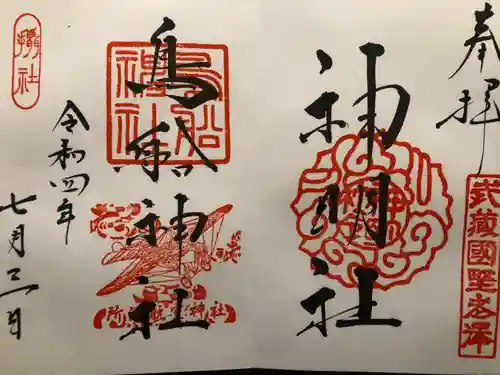 奉拝
武蔵國野老澤
神明社
鳥船神社
鳥船神社
攝社
令和四年
七月三日